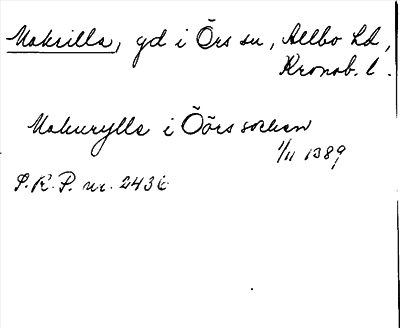 Makrilla, gd i Örs sn, Allbo hd,
Kronob. l.
Makurylle i Öörs socken
1/11 1389
S.R.P. nr. 2436